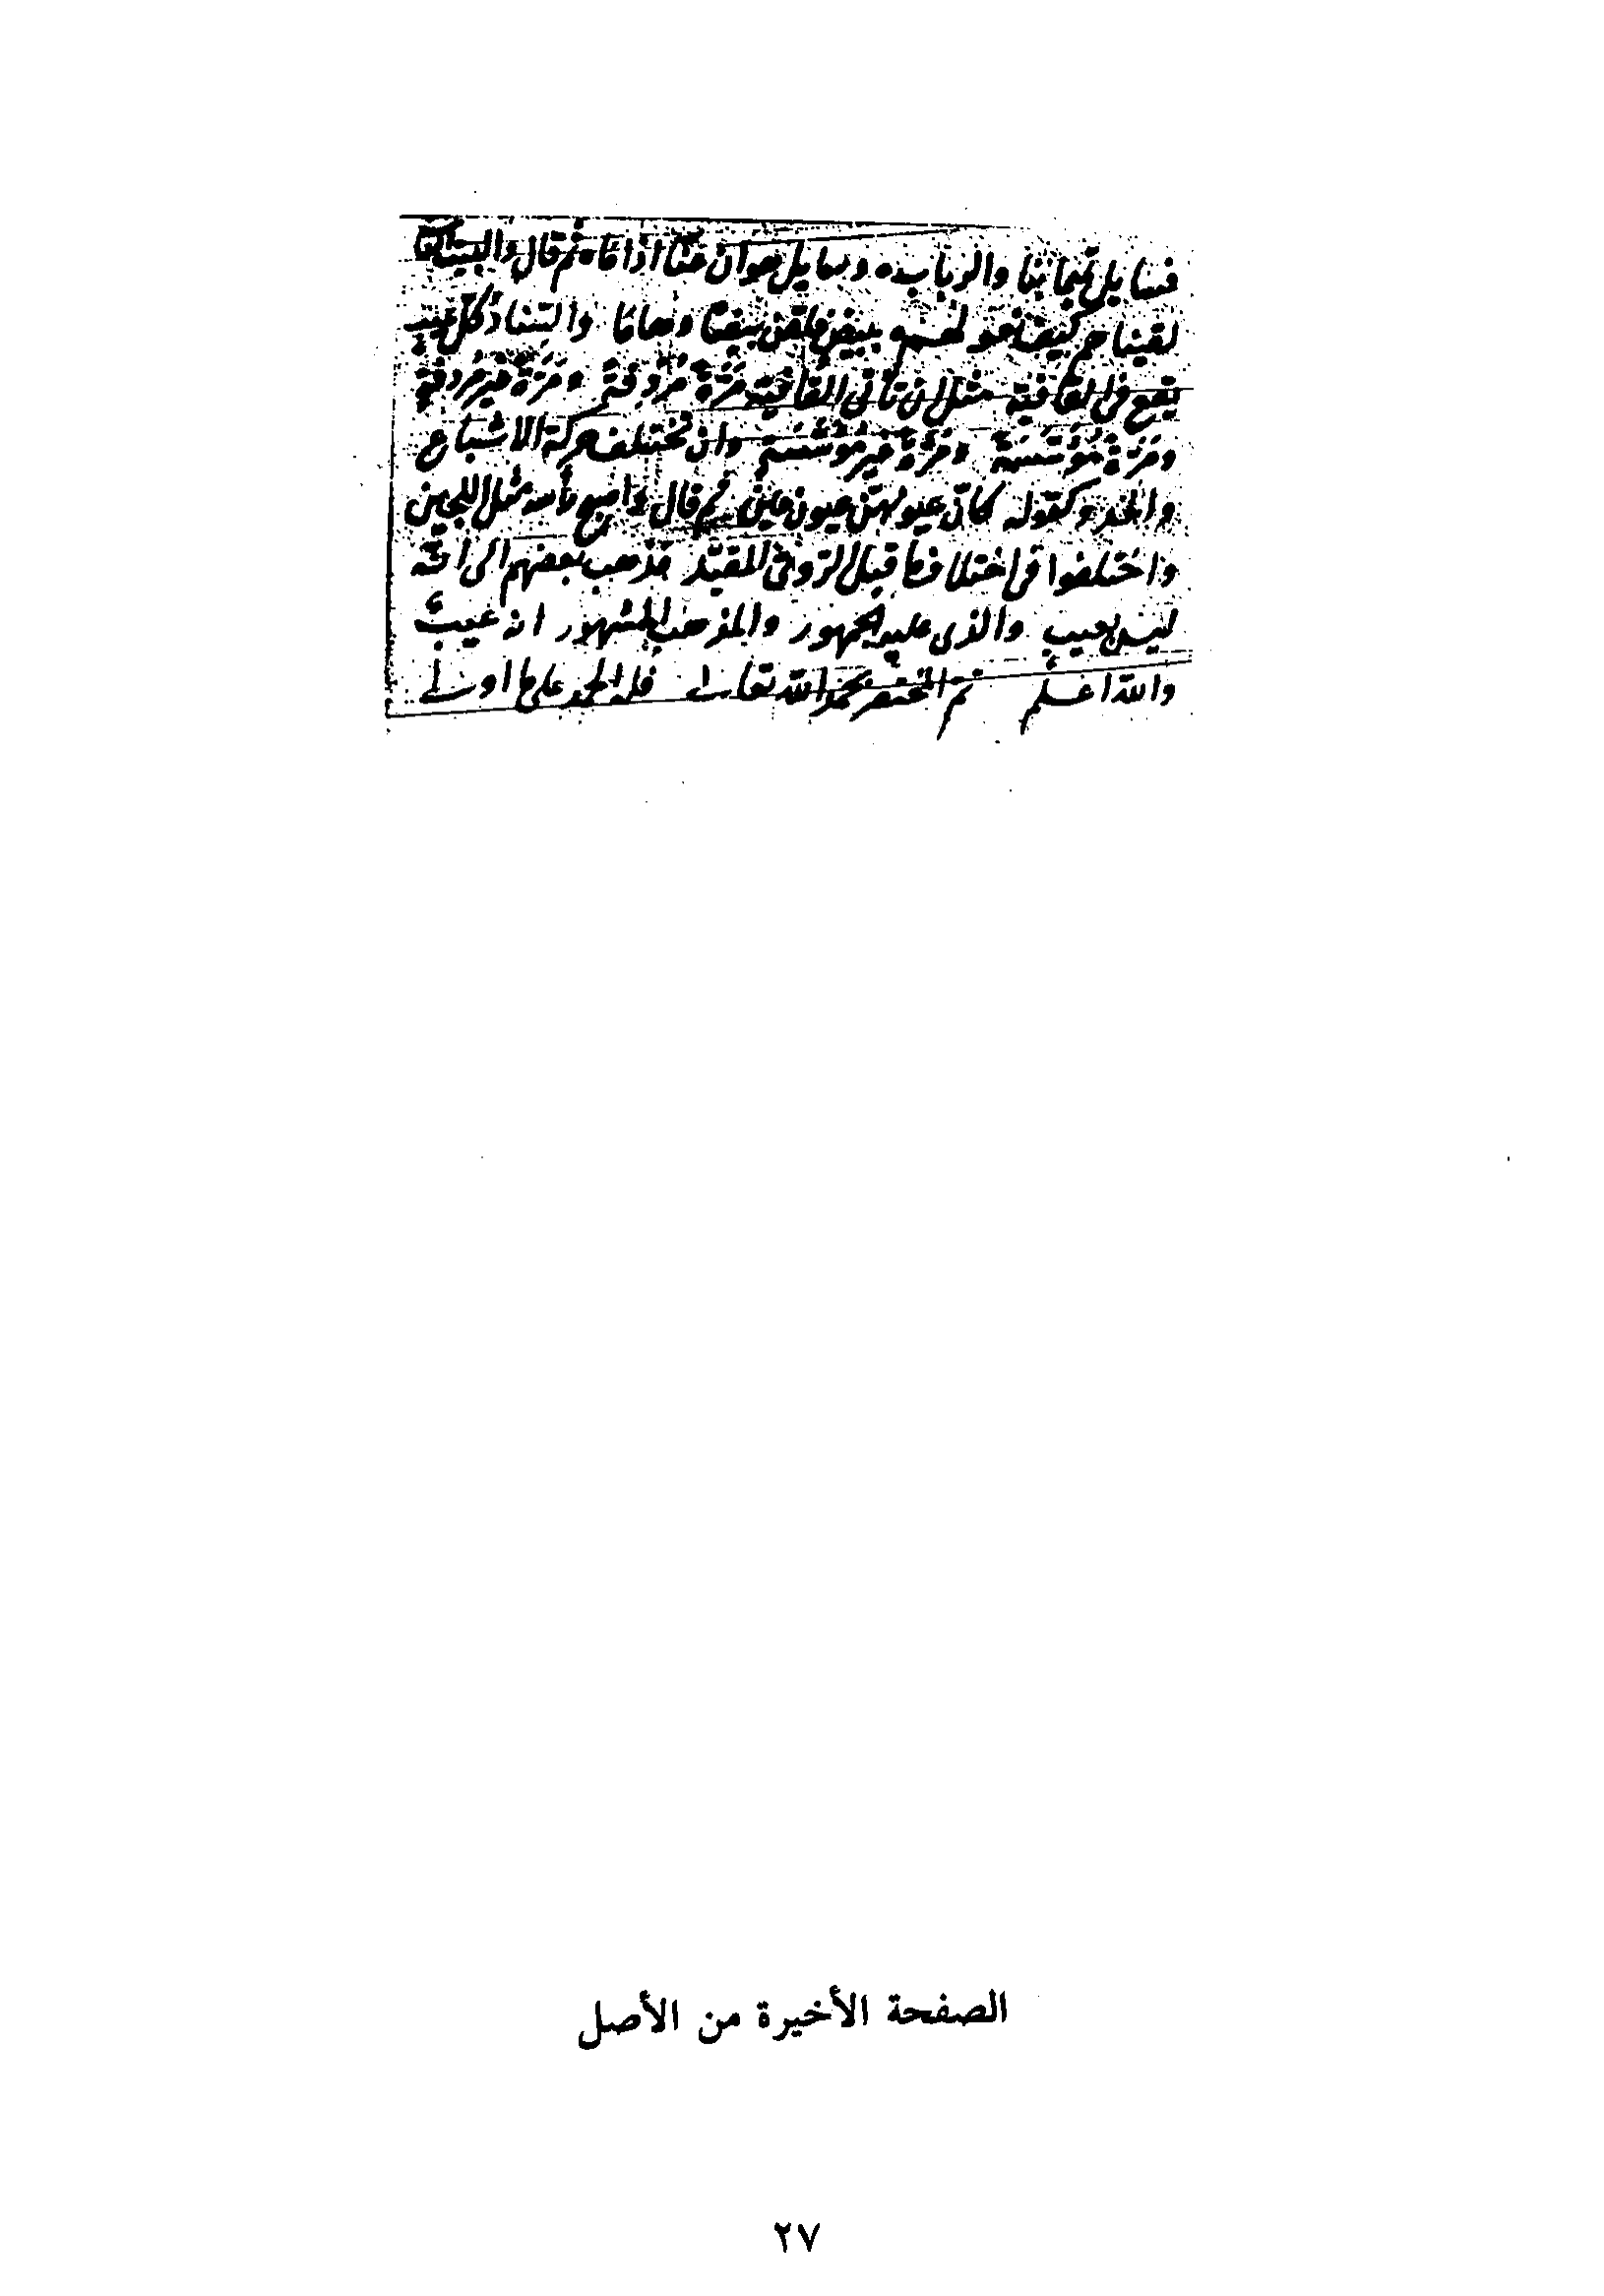 فسايل تميما بنا والرباب ٥ وسايل هوازن عنا اذا ما ٥ ثم قال والبيت
لقيناهم كيف نعلوهم ببيض يفلقن بيضا وهاما والسناد كل عيب
يقع في القافية مثل ان تأتي القافية مرّة مردفة ومرّة غير مردفة
ومرّة مؤسّسة ومرّة غير مؤسّسة وان تختلف حركة الاشباع
والحذو كقوله كأنّ عيونهنّ عيون عين ثم قال واصبح رأسه مثل اللجين
واختلفوا في اختلاف ما قبل الروي المقيّد فذهب بعضهم الى انّه
ليس بعيب والذي عليه الجمهور والمذهب المشهور انه عيب
والله اعلم تم المختصر بحمد الله تعالى فله الحمد على ما اولى
الصفحة الأخيرة من الأصل
٢٧